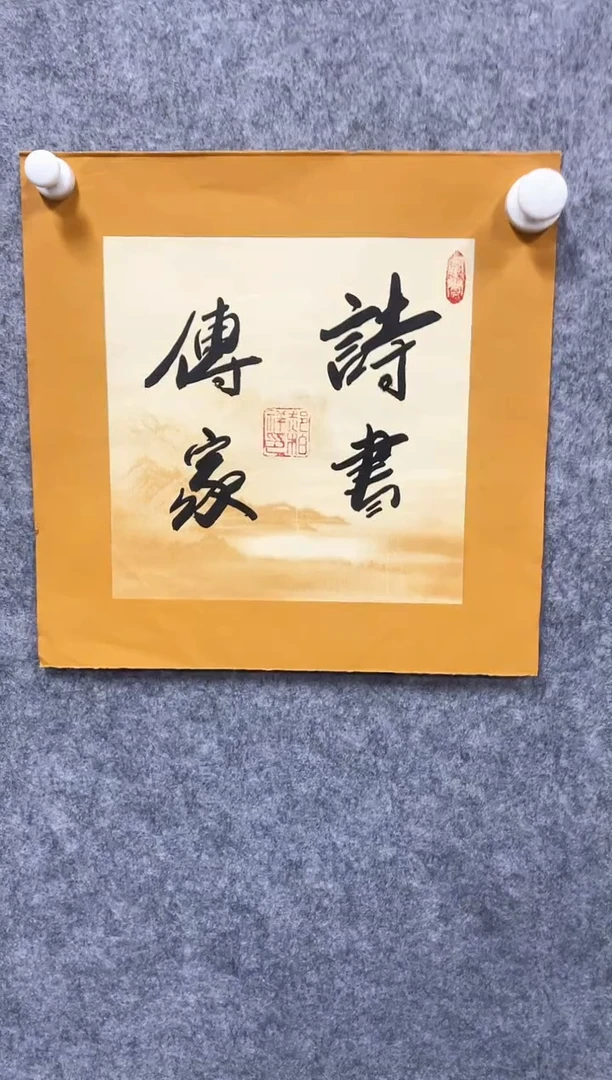 詩書
傳家